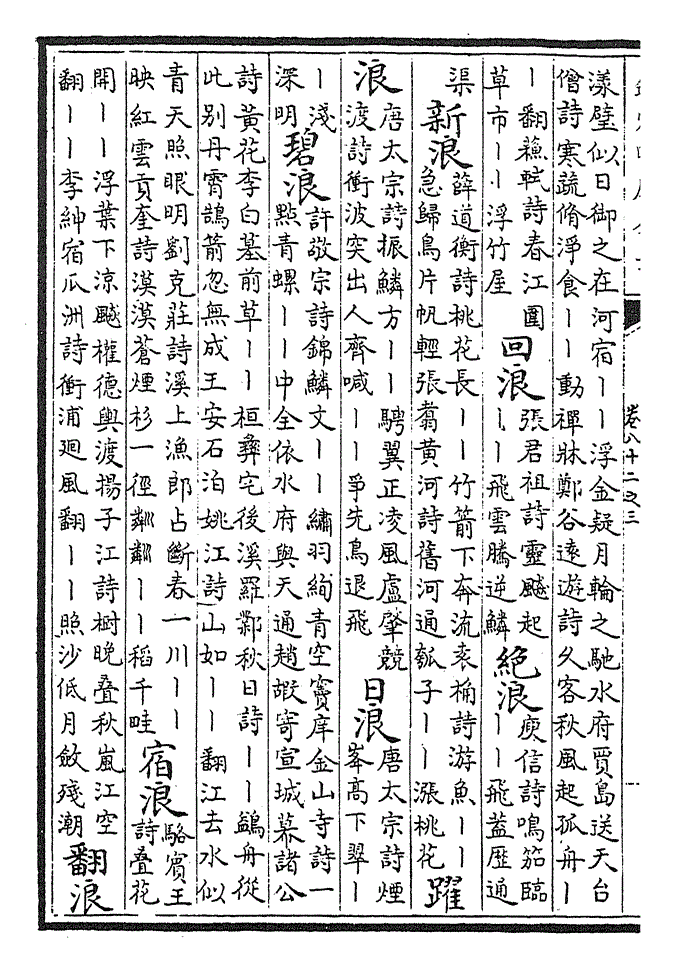 卷八十二之三
漾璧似日御之在河宿丨丨浮金疑月輪之馳水府賈島送天台
僧詩寒蔬脩淨食丨丨動禪牀鄭谷遠遊詩久客秋風起孤舟丨
丨翻蘓軾詩春江圍
草市丨丨浮竹屋
回浪
張君祖詩靈飈起
丨丨飛雲騰逆鱗
絕浪
庾信詩鳴笳臨
丨丨飛蓋歷通
渠
新浪
薛道衡詩桃花長丨丨竹箭下奔流袁桷詩游魚丨丨
急歸鳥片帆輕張翥黄河詩舊河通瓠子丨丨漲桃花
躍
浪
唐太宗詩振鱗方丨丨騁翼正凌風盧肇競
渡詩衝波突出人齊喊丨丨爭先鳥退飛
日浪
唐太宗詩煙
峯高下翠丨
丨淺
深明
碧浪
許敬宗詩錦鱗文丨丨繡羽絢青空竇庠金山寺詩一
點青螺丨丨中全依水府與天通趙嘏寄宣城幕諸公
詩黄花李白墓前草丨丨桓彝宅後溪羅鄴秋日詩丨丨鷁舟從
此别丹霄鵠箭忽無成王安石泊姚江詩山如丨丨翻江去水似
青天照眼明劉克莊詩溪上漁郎占斷春一川丨丨
映紅雲貢奎詩漠漠蒼煙杉一徑粼粼丨丨稻千畦
宿浪
駱賓王
詩叠花
開丨丨浮葉下涼飈權德輿渡揚子江詩樹晚叠秋嵐江空
翻丨丨李紳宿瓜洲詩衝浦廻風翻丨丨照沙低月斂殘潮
翻浪